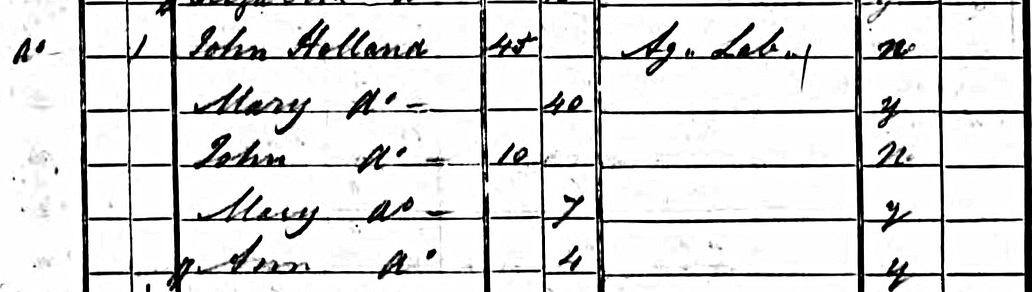 do 1 John Holland 45 Ag. Lab. n
Mary do 40 y
John do 10 n
Mary do 7 y
Ann do 4 y